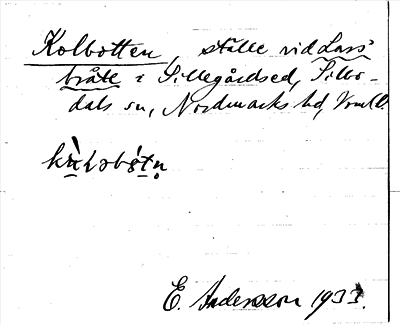 Kolbotten, ställe vid Lars'
bråte i Sillegårdsed, Silbo-
dals sn, Nordmarks hd, Vrml.
E. Andersson 1933.